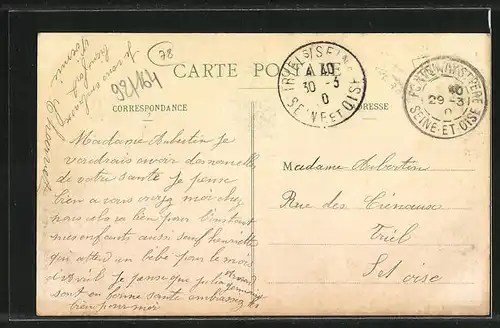 78
98/164
CARTE POSTALE
CORRESPONDANCE
ADRESSE
TRIEL S/SEINE
30 -3
SEINE ET OISE
40
29-3
SEINE-ET-OISE
Madame Aubertin Je
voudrais avoir des nouvelles
de votre santé Je pense
bien a vous
nous cela va bien pour l'instant
mes enfants aussi sauf henriette
qui attend un bébé pour le mois
d'avril Je pense que julia
sont en bonne santé embrassez les
bien pour moi
Madame Aubertin
Rue des Créneaux
Triel
S et oise